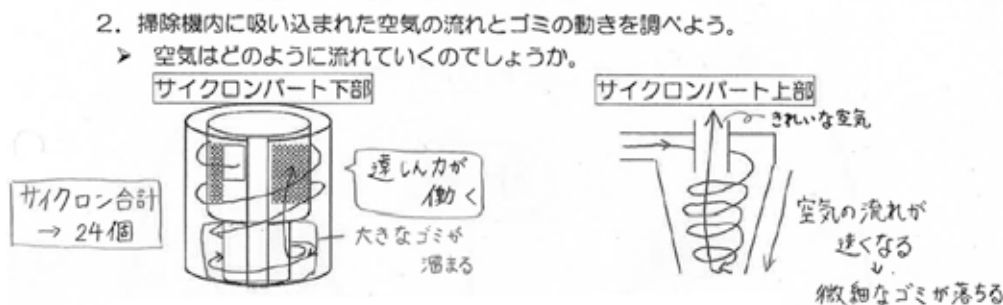 2. 掃除機内に吸い込まれた空気の流れとゴミの動きを調べよう。
➤ 空気はどのように流れていくのでしょうか。
サイクロンパート下部
サイクロン合計
→ 24個
遠しん力が
働く
大きなゴミが
溜まる
サイクロンパート上部
きれいな空気
空気の流れが
速くなる
↓
微細なゴミが落ちる